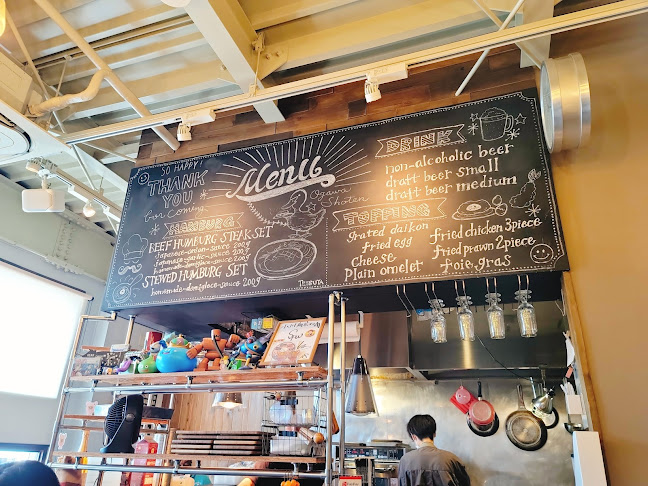 SO HAPPY!
THANK
YOU
for coming
HAMBURG
BEEF HUMBURG STEAK SET
Japanese-onion-sauce 200g
Japanese-garlic-sauce 200g
STEWED HUMBURG SET
homemade-demiglace-sauce 200g
Menu
Ogawa
Shoten
TETSUTA
DRINK
non-alcoholic beer
draft beer small
draft beer medium
TOPPING
grated daikon
fried egg
cheese
plain omelet
fried chicken 3piece
fried prawn 2piece
foie gras